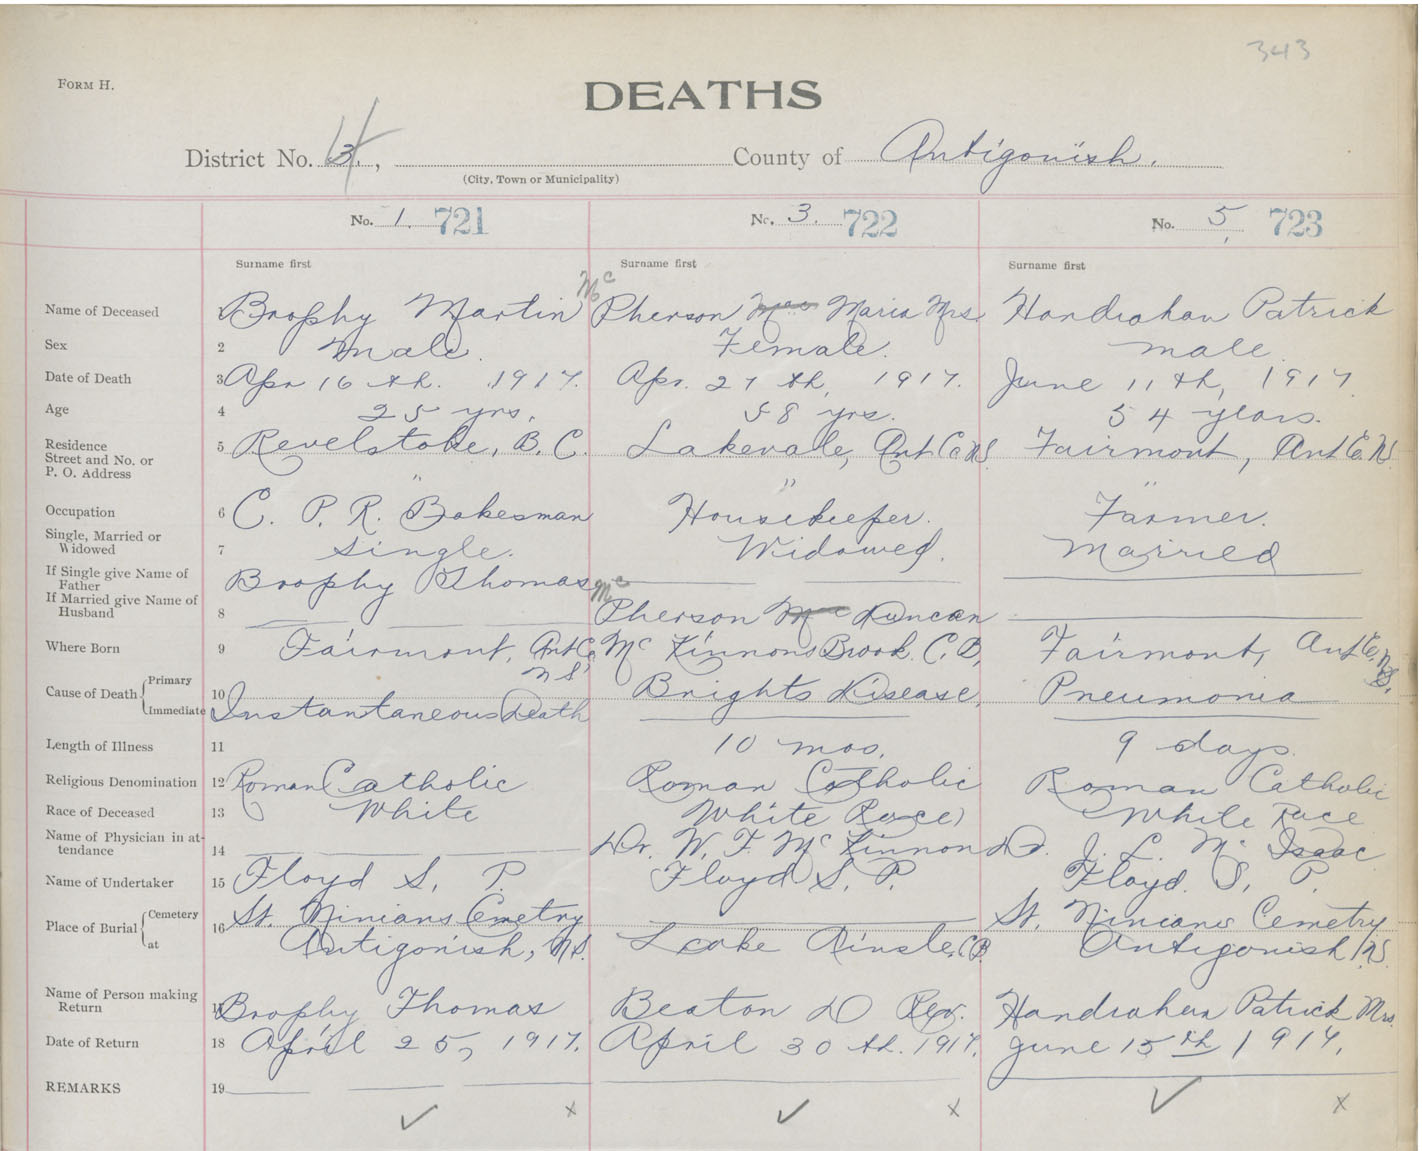 343
FORM H.
DEATHS
District No. 4, County of Antigonish.
(City, Town or Municipality)
No. 1. 721 No. 3. 722 No. 5, 723
Surname first Surname first Surname first
Name of Deceased 1 Brophy Martin McPherson Maria Mrs. Handrahan Patrick
Sex 2 Male. Female. male.
Date of Death 3 Apr 16 th. 1917. Apr. 27 th, 1917. June 11 th, 1917
Age 4 25 yrs. 58 yrs. 54 years.
Residence
Street and No. or
P. O. Address
5 Revelstoke, B. C. Lakevale, Ant Co NS. Fairmont, Ant Co. NS
" " "
Occupation 6 C. P. R. Bakesman Housekeeper. Farmer.
Single, Married or
Widowed
7 Single. Widowed. Married
If Single give Name of
Father
Brophy Thomas
If Married give Name of
Husband
8 McPherson Duncan
Where Born 9 Fairmont, Ant Co NS Mc Kinnons Brook. C. B. Fairmont, Ant Co. NS.
Cause of Death Primary
Immediate
10 Instantaneous Death Brights Disease, Pneumonia
Length of Illness 11 10 mos. 9 days.
Religious Denomination 12 Roman Catholic Roman Catholic Roman Catholic
Race of Deceased 13 White White Race) White Race
Name of Physician in at-
tendance
14 Dr. W. F. Mc Kinnon Dr. J. L. Mc Isaac
Name of Undertaker 15 Floyd S. P. Floyd S. P. Floyd. S. P.
Place of Burial Cemetery
at
16 St. Ninians Cemetry St. Ninians Cemetry
Antigonish, NS. Lake Ainslie, CB. Antigonish NS.
Name of Person making
Return
17 Brophy Thomas Beaton D Rev. Handrahan Patrick Mrs.
Date of Return 18 April 25, 1917. April 30 th. 1917. June 15 th 1917.
REMARKS 19
✓ x ✓ x ✓ x